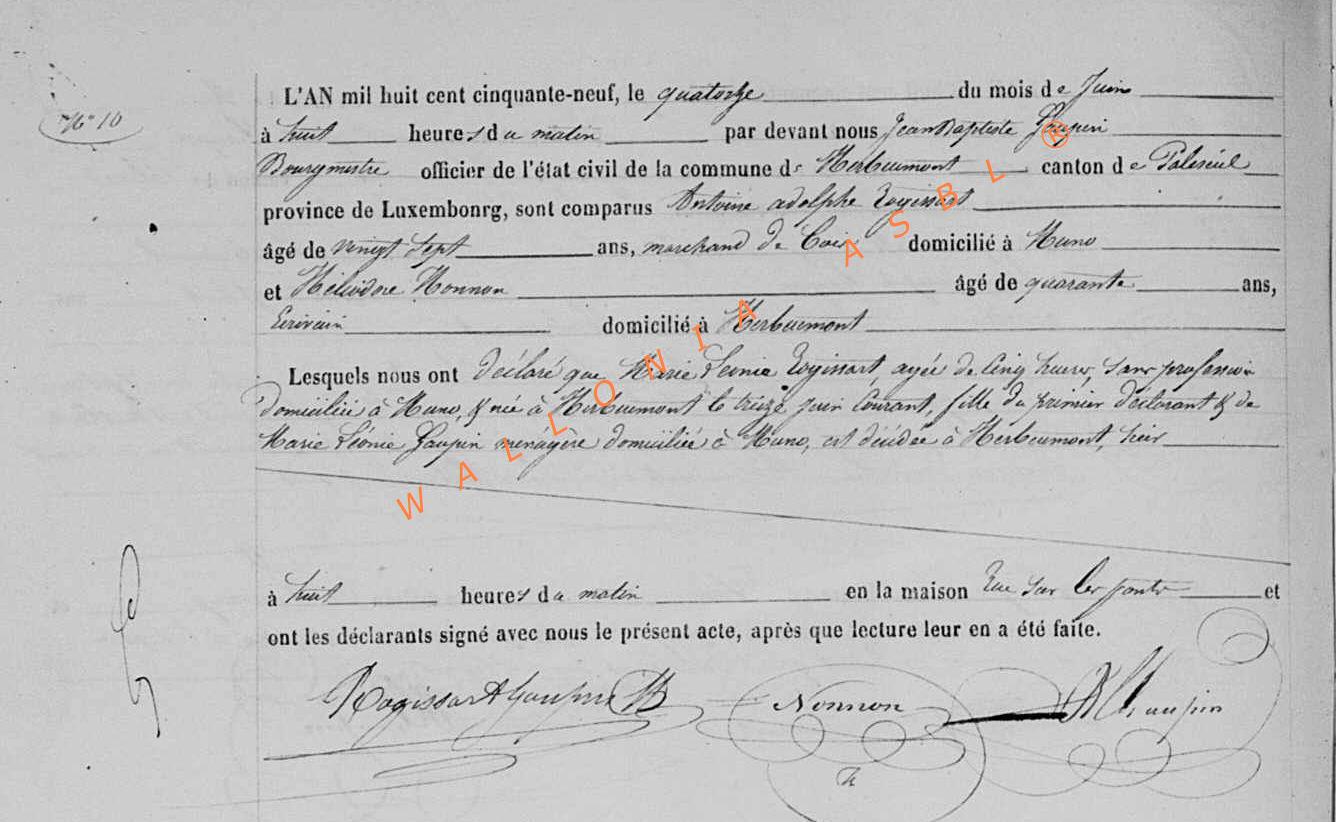 N° 10
L'AN mil huit cent cinquante-neuf, le quatorze du mois de Juin
à huit heures du matin par devant nous Jean Baptiste Gaupin
Bourgmestre officier de l'état civil de la commune de Herbeumont canton de Paliseul
province de Luxembonrg, sont comparus Antoine adolphe Rogissart
âgé de vingt sept ans, marchand de Bois domicilié à Muno
et Héliodore Nonnon âgé de quarante ans,
Ecrivain domicilié à Herbeumont
Lesquels nous ont déclaré que Marie Léonie Rogissart, agée de cinq heures, sans profession
domiciliée à Muno, & née à Herbeumont le treize juin courant, fille du premier déclarant & de
Marie Léonie Gaupin ménagère domiciliée à Muno, est décédée à Herbeumont, hier
à huit heures du matin en la maison Rue sur les ponts et
ont les déclarants signé avec nous le présent acte, après que lecture leur en a été faite.
Rogissart Gaupin Nonnon Gaupin
WALLONIA ASBL ®